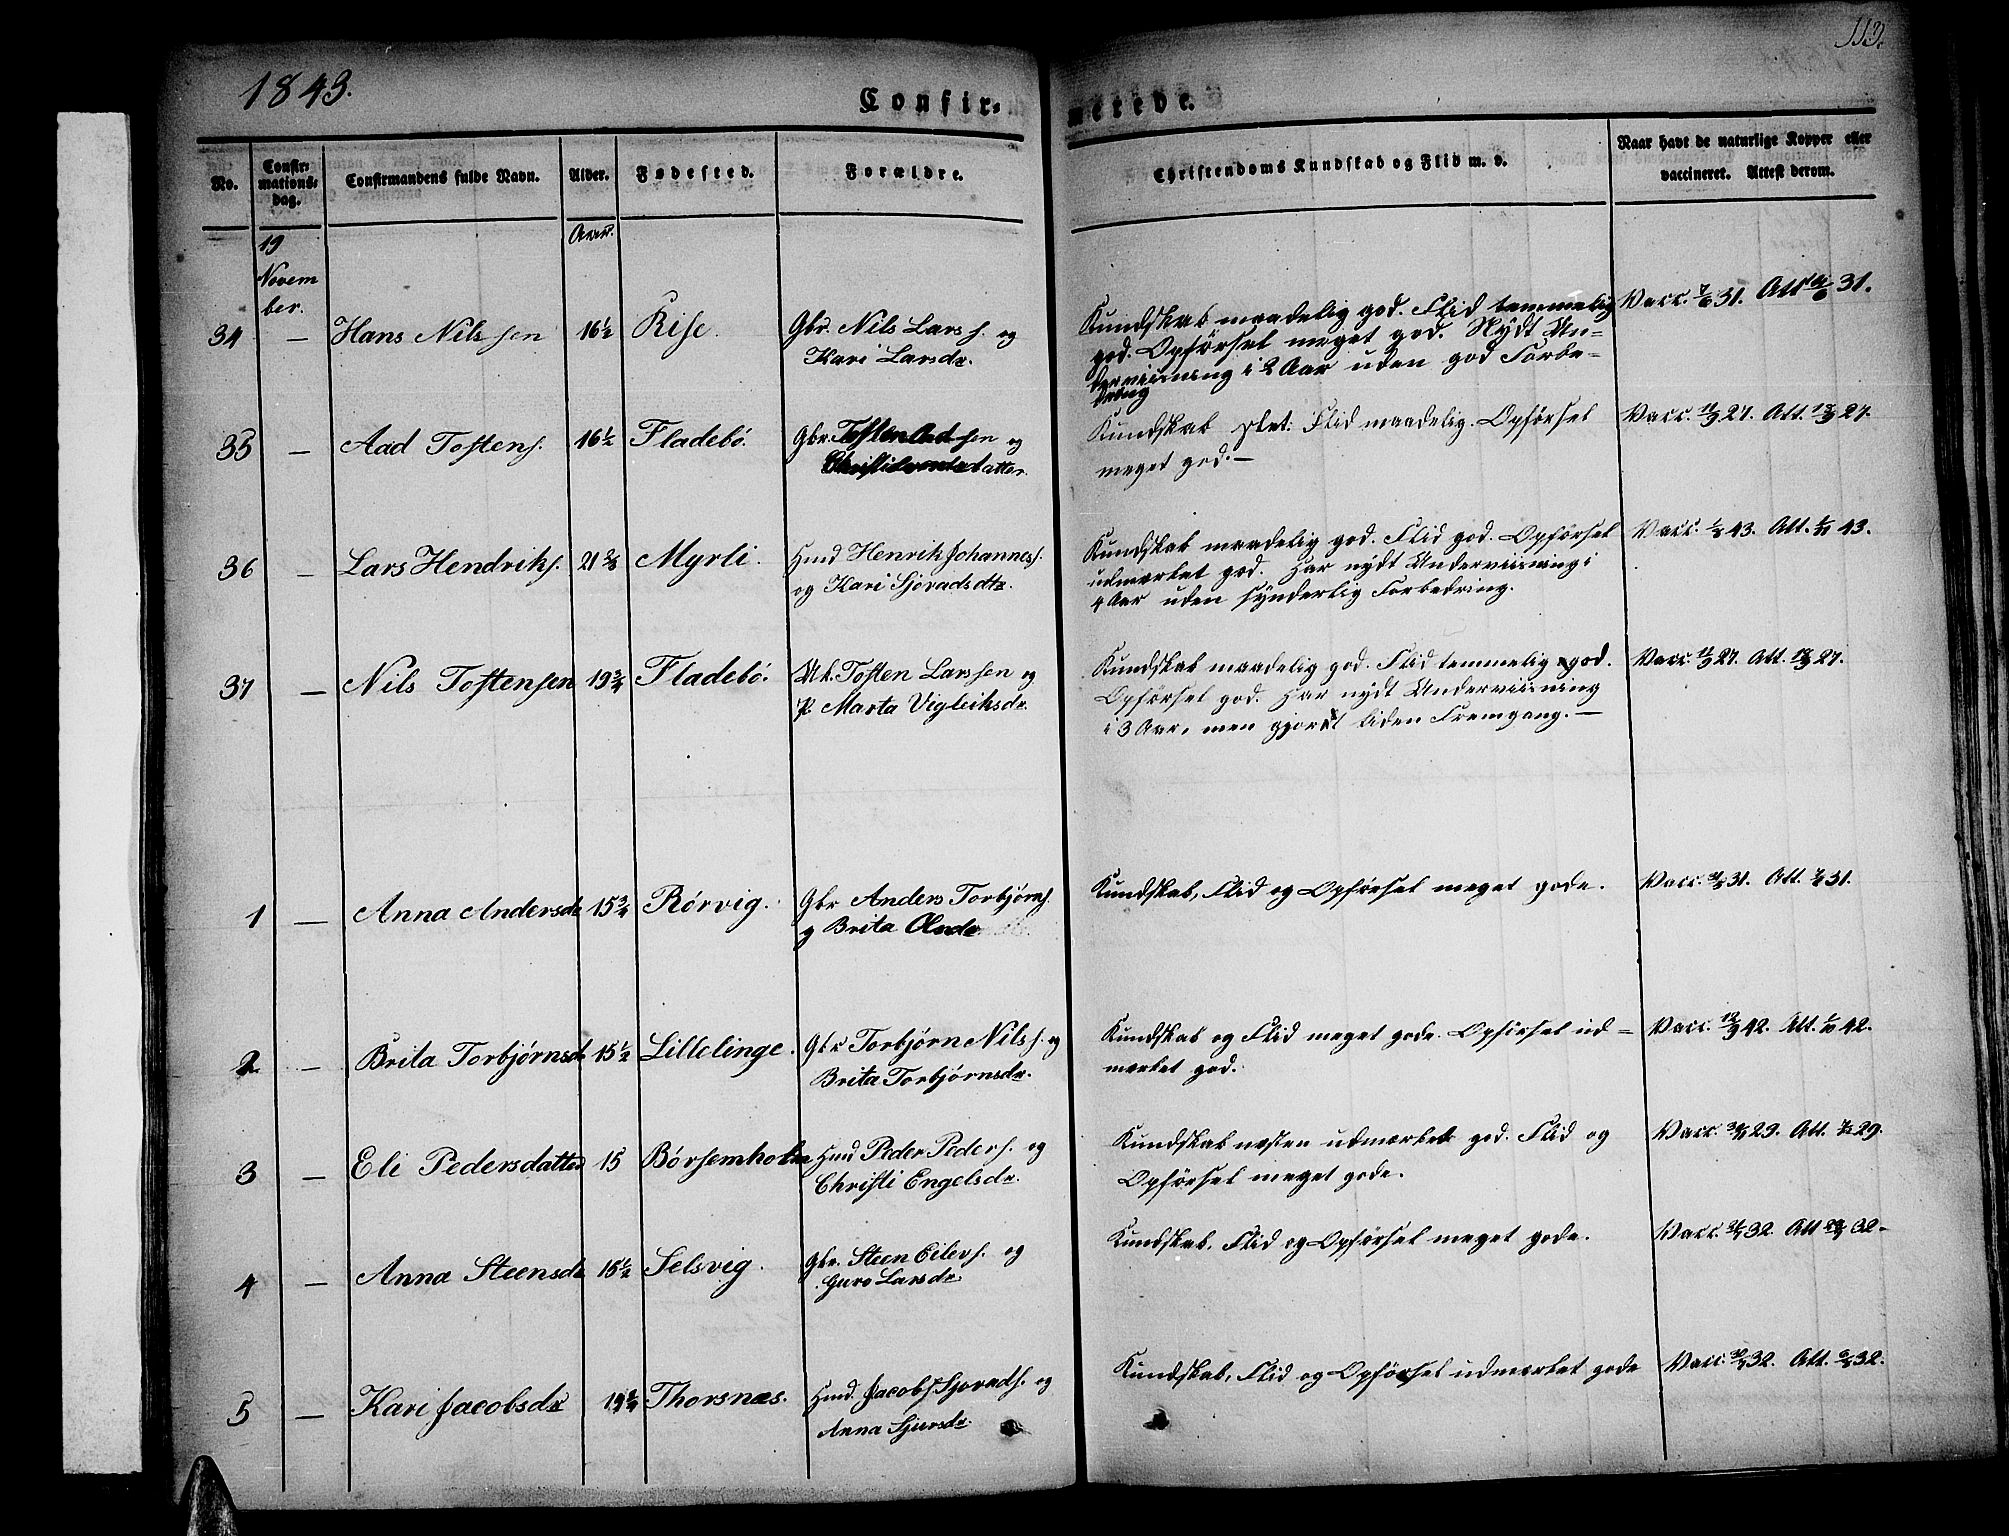 1843.
113.
Confir=
merede.
No.
Confir=
mations=
dag.
Confirmandens fulde Navn.
Alder.
Fødested.
Forældre.
Christendoms Kundskab og Flid m. v.
Naar havt de naturlige Kopper eller
vaccineret. Attest derom.
19
Novem
ber.
Aar.
34 — Hans Nilssen 16½ Rise. Gbr. Nils Larss. og
Kari Larsdr.
Kundskab maadelig god. Flid temmelig
god. Opførsel meget god. Nydt Un=
derviisning i 2 Aar uden god Forbe=
dring
Vacc. 31. Att. 31.
35 — Aad Tostens. 16½ Fladebø. Gbr. Tosten Aadsen og
datter.
Kundskab slet: Flid maadelig. Opførsel
meget god. —
Vacc. 27. Att. 27.
36 — Lars Hendriks. 21 Myrli. Hmd Henrik Johanness.
og Kari Sjovadsdtr.
Kundskab maadelig god. Flid god. Opførsel
udmærket god. Har nydt Underviisning i
4 Aar uden synderlig Forbedring.
Vacc. 43. Att. 43.
37 — Nils Tostensen 19¾ Fladebø. Uk. Tosten Larssen og
P. Marta Vigleiksdr.
Kundskab maadelig god. Flid temmelig god.
Opførsel god. Har nydt Underviisning
i 3 Aar, men gjort liden Fremgang. —
Vacc. 27. Att. 27.
1 — Anna Andersdr 15¾ Rørvig. Gbr Anders Torbjørns.
og Brita Olsdr
Kundskab, Flid og Opførsel meget gode.
Vacc. 31. Att. 31.
2 — Brita Torbjørnsdr 15½ Lillelinge. Gbr Torbjørn Nilss. og
Brita Torbjørnsdr.
Kundskab og Flid meget gode. Opførsel ud=
mærket god.
Vacc. 42. Att. 42.
3 — Eli Pedersdatter 15 Børsemholm Hmd Peder Peders. og
Christi Engelsdr.
Kundskab næsten udmærket god. Flid og
Opførsel meget gode.
Vacc. 29. Att. 29.
4 — Anna Steensdr 15½ Selsvig. Gbr. Steen Eilevs. og
Guro Larsdr.
Kundskab, Flid og Opførsel meget gode.
Vacc. 32. Att 32.
5 — Kari Jacobsdr Thorsnæs. Hmd. Jacob Sjovads. og
Anna Sjursdr.
Kundskab, Flid og Opførsel udmærket gode
Vacc. 32. Att. 32.